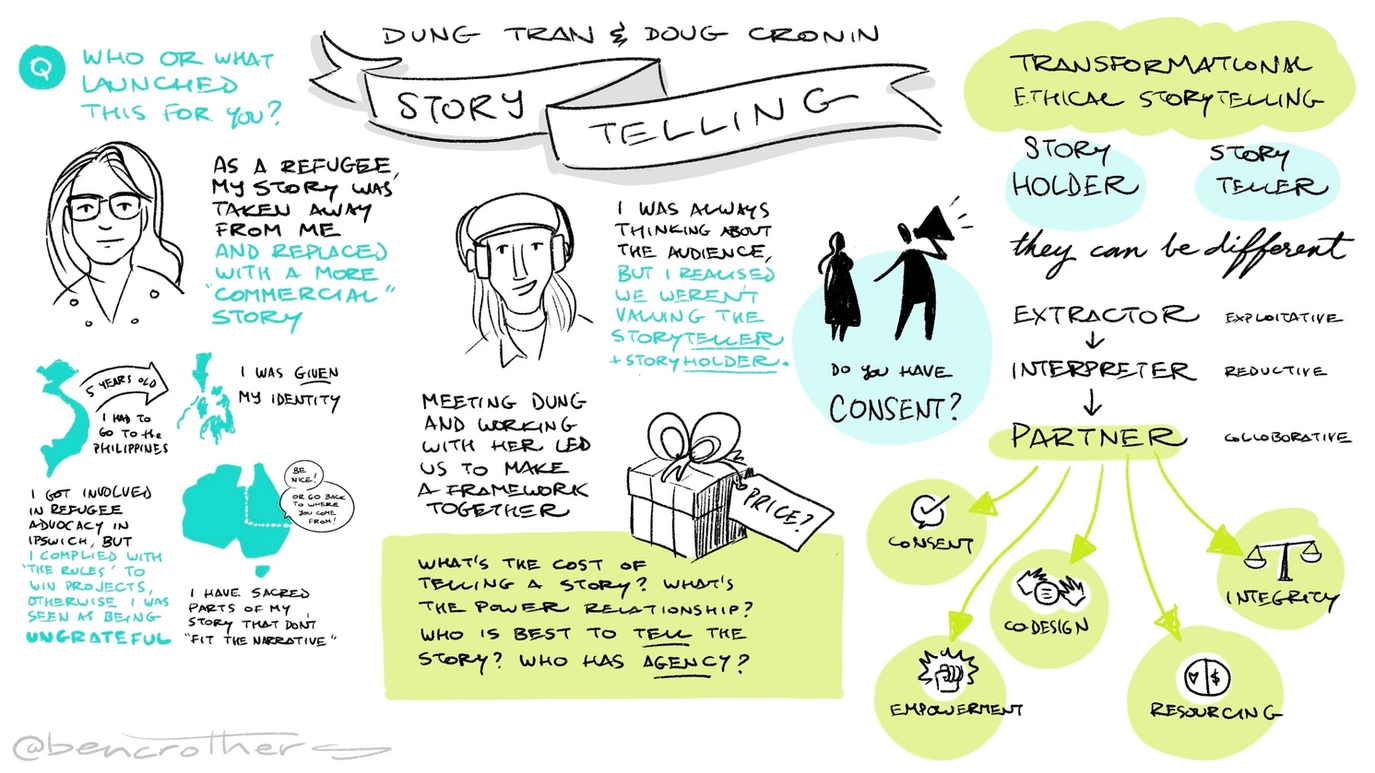 DUNG TRAN & DOUG CRONIN
STORY
TELLING
Q
WHO OR WHAT
LAUNCHED
THIS FOR YOU?
AS A REFUGEE,
MY STORY WAS
TAKEN AWAY
FROM ME
AND REPLACED
WITH A MORE
"COMMERCIAL"
STORY
5 YEARS OLD
I HAD TO
GO TO the
PHILIPPINES
I WAS GIVEN
MY IDENTITY
I GOT INVOLVED
IN REFUGEE
ADVOCACY IN
IPSWICH, BUT
I COMPLIED WITH
'THE RULES' TO
WIN PROJECTS,
OTHERWISE I WAS
SEEN AS BEING
UNGRATEFUL
BE
NICE!
OR GO BACK
TO WHERE
YOU COME
FROM!
I HAVE SACRED
PARTS OF MY
STORY THAT DON'T
"FIT THE NARRATIVE"
I WAS ALWAYS
THINKING ABOUT
THE AUDIENCE,
BUT I REALISED
WE WEREN'T
VALUING THE
STORYTELLER
+ STORYHOLDER.
MEETING DUNG
AND WORKING
WITH HER LED
US TO MAKE
A FRAMEWORK
TOGETHER
PRICE?
WHAT'S THE COST OF
TELLING A STORY? WHAT'S
THE POWER RELATIONSHIP?
WHO IS BEST TO TELL THE
STORY? WHO HAS AGENCY?
DO YOU HAVE
CONSENT?
TRANSFORMATIONAL
ETHICAL STORYTELLING
STORY
HOLDER
STORY
TELLER
they can be different
EXTRACTOR EXPLOITATIVE
INTERPRETER REDUCTIVE
PARTNER COLLOBORATIVE
CONSENT
EMPOWERMENT
CO-DESIGN
$
RESOURCING
INTEGRITY
@bencrothers